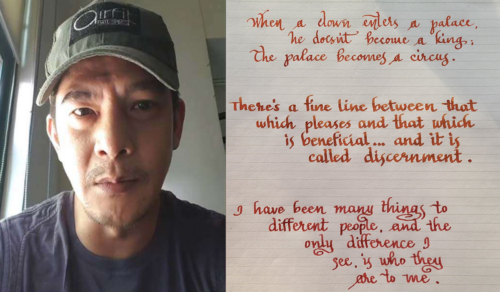 When a clown enters a palace,
he doesn't become a king;
The palace becomes a circus.
There's a fine line between that
which pleases and that which
is beneficial... and it is
called discernment.
I have been many things to
different people, and the
only difference I
see, is who they
are to me.